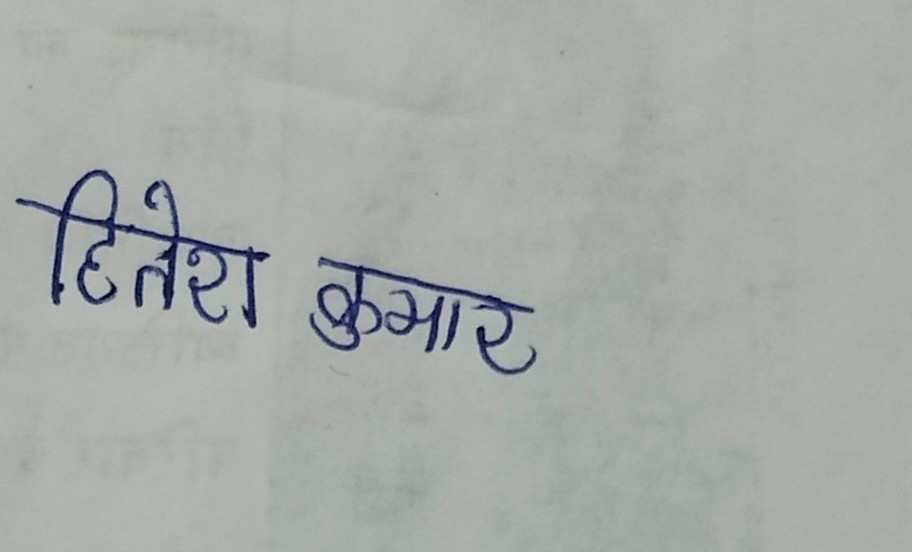 हितेश कुमार